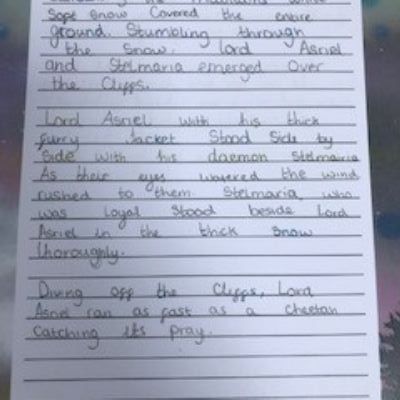 the mountains while
soft snow covered the entire
ground. Stumbling through
the snow, Lord Asriel
and Stelmaria emerged over
the cliffs.
Lord Asriel with his thick
furry jacket stood side by
side with his daemon Stelmaria
As their eyes the wind
rushed to them. Stelmaria, who
was loyal stood beside Lord
Asriel in the thick snow
thoroughly.
Diving off the cliffs, Lord
Asriel ran as fast as a cheetah
catching its pray.